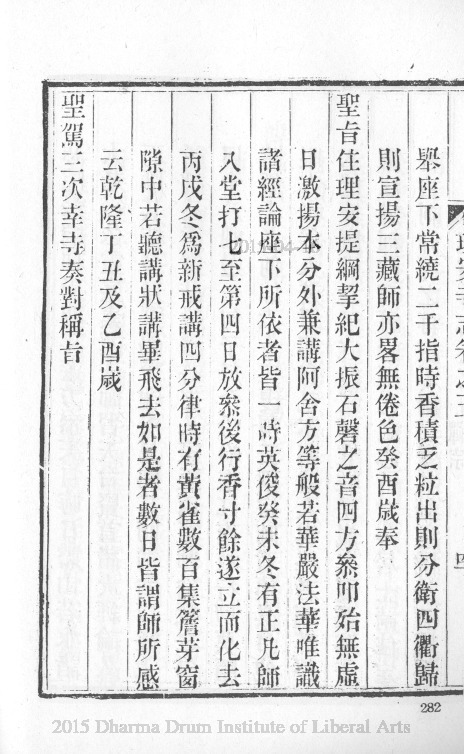 舉座下常繞二千指時香積乏粒出則分衛四衢歸
則宣揚三藏師亦畧無倦色癸酉歲奉
聖旨住理安提綱挈紀大振石磬之音四方叅叩殆無虛
日激揚本分外兼講阿含方等般若華嚴法華唯識
諸經論座下所依者皆一時英俊癸未冬有正凡師
入堂打七至第四日放叅後行香寸餘遂立而化去
丙戌冬爲新戒講四分律時有黃雀數百集簷芽窗
隙中若聽講狀講畢飛去如是者數日皆謂師所感
云乾隆丁丑及乙酉歲
聖駕三次幸寺奏對稱旨
282
2015 Dharma Drum Institute of Liberal Arts